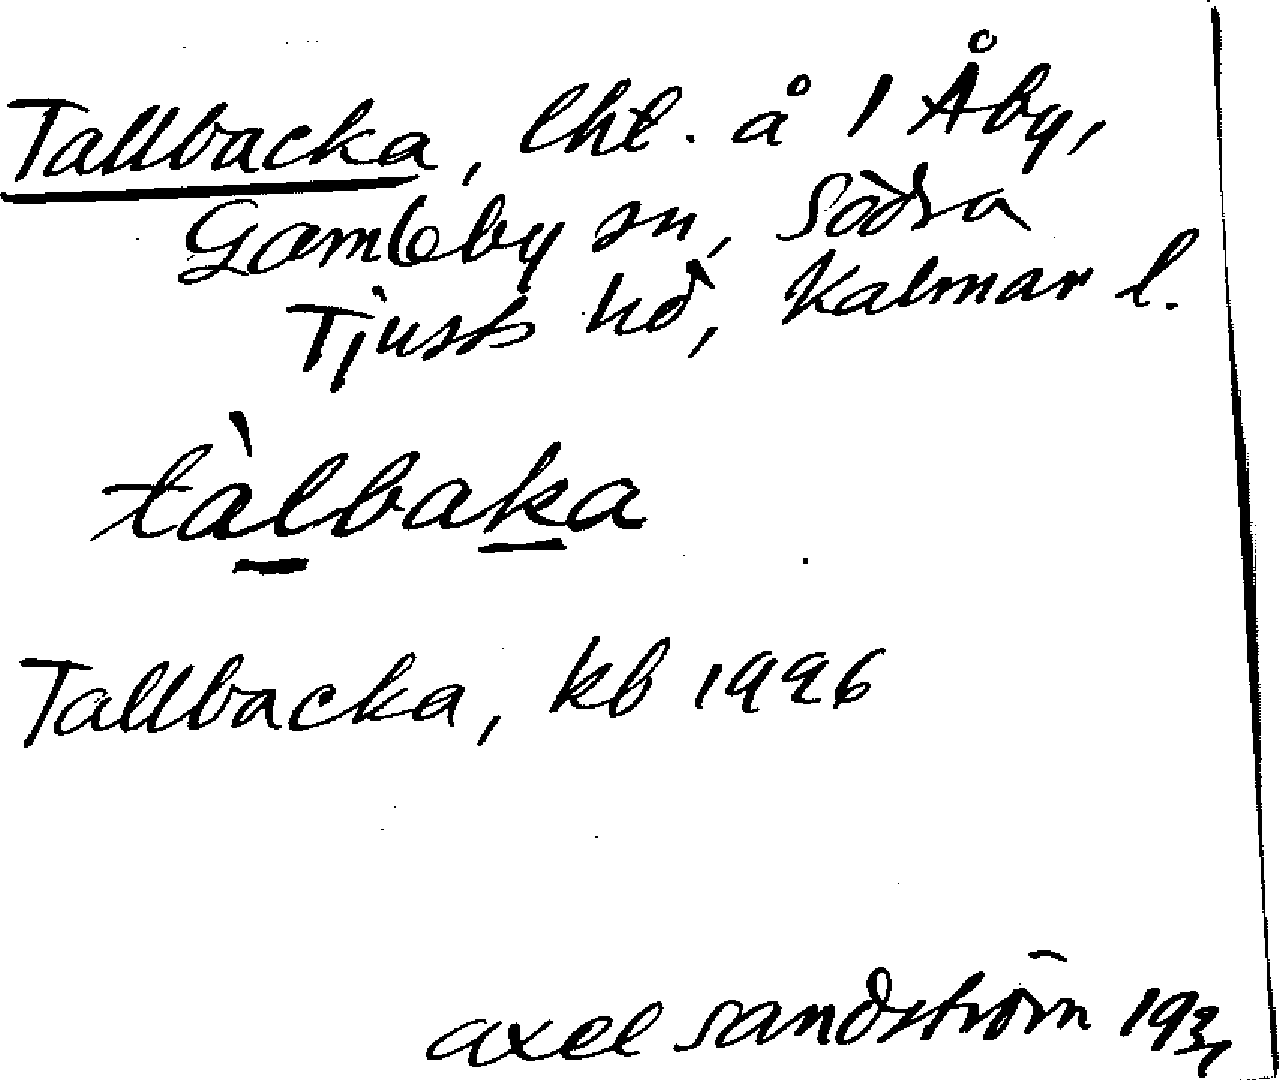 Tallbacka, lht. å 1 Åby,
Gamleby sn, Södra
Tjusts hd, Kalmar l.
tàlbaka
Tallbacka, kb 1926
Axel Sandström 1931